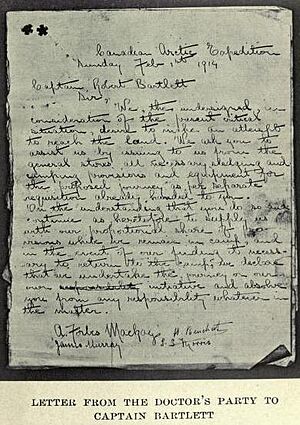 Canadian Arctic Expedition
Sunday Feb 1st 1914
Captain Robert Bartlett
Sir,
We, the undersigned, in
consideration of the present critical
situation, desire to make an attempt
to reach the land. We ask you to
assist us by issuing to us from the
general stores all necessary sledging and
camping provisions and equipment for
the proposed journey as per separate
requisition already handed to you.
On the understanding that you do so and
continue as heretofore to supply us
with our proportional share of
provisions while we remain in camp and
in the event of our finding it necess
ary to return to the camp, we declare
that we undertake the journey on our
own responsibility initiative and absolve
you from any responsibility whatever in
the matter.
A. Forbes Mackay H. Beuchat
James Murray
LETTER FROM THE DOCTOR'S PARTY TO
CAPTAIN BARTLETT